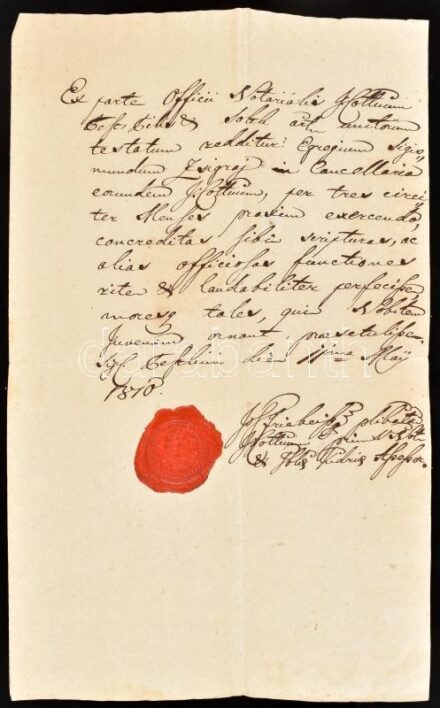 Ex parte Officii Notarialis I. Cottuum
Pest, Pilis & Solth artr. unitorum
testatum redditur: Egregium Sigis„
mundum Zsigraj in Cancellaria
eorundem I. Cottuum, per tres circi„
ter Menses praxim exercendo,
concreditas sibi scripturas, ac
alias officiosas functiones
rite & laudabiliter perfecisse,
moresq tales, qui Nobilem
Juvenem ornant, praesetulisse.
Sig. Pesthini die 11ma Maji
1810.
I. Cottuum prim.
&
darabanth